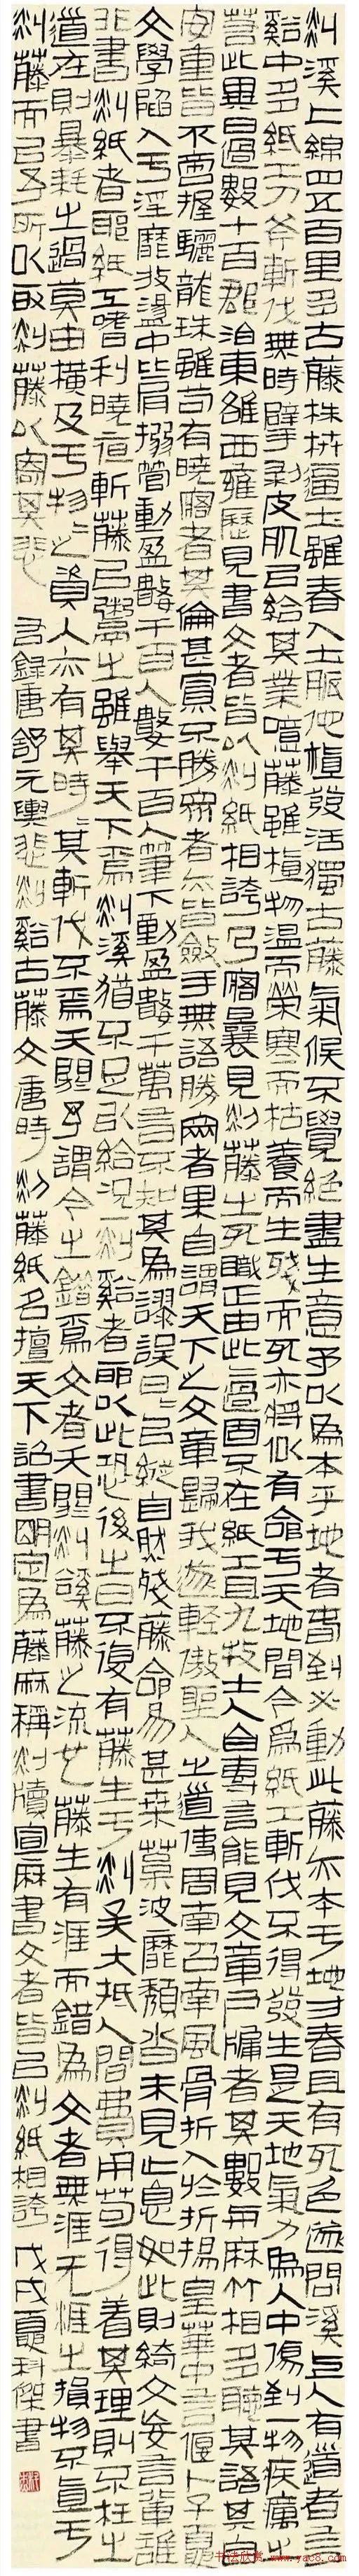 剡溪上綿四五百里多古藤株枿逼土雖春入土脈他植發活獨古藤氣候不覺絕盡生意予以為本乎地者春到必動此藤亦本于地方春且有死色遂問溪上人有道者言
谿中多紙工刀斧斬伐無時擘剝皮肌以給其業噫藤雖植物溫而榮寒而枯養而生殘而死亦將似有命于天地間今為紙工斬伐不得發生是天地氣力為人中傷到一物疾癘之
若此異日過數十百郡洎東雒西雍歷見書文者皆以剡紙相誇予寤曩見剡藤之死職正由此此過固不在紙工且九牧士人自專言能見文章戶牖者其數與麻竹相多聽其語其自
安重皆不啻握驪龍珠雖苟有曉寤者其倫甚寡不勝眾者亦皆斂手無語勝眾者果自謂天下之文章歸我遂輕傲聖人之道使周南召南風骨折入於折揚皇華中言偃卜子夏
文學陷入于淫靡放蕩中比肩搦管動盈數千百人數千百人筆下動盈數千萬言不知其為謬誤日日以縱自然殘藤命易甚桑葉波靡頹沓未見止息如此則綺文妄言輩誰
非書剡紙者耶紙工嗜利曉夜斬藤以鬻之雖舉天下為剡溪猶不足以給況一剡谿者耶以此恐後之日不復有藤生于剡矣大抵人間費用苟得著其理則不枉之
道在則暴耗之過莫由橫及于物物之資人亦有其時時其斬伐不為夭閼予謂今之錯為文者夭閼剡谿藤之流也藤生有涯而錯為文者無涯无涯之損物不直于
剡藤而已予所以取剡藤以寄其悲 右錄唐舒元輿悲剡谿古藤文唐時剡藤紙名擅天下詔書明定為藤麻稱剡牘宣麻書文者皆以剡紙相誇 戊戌夏科傑書
书法欣赏 www.yac8.com